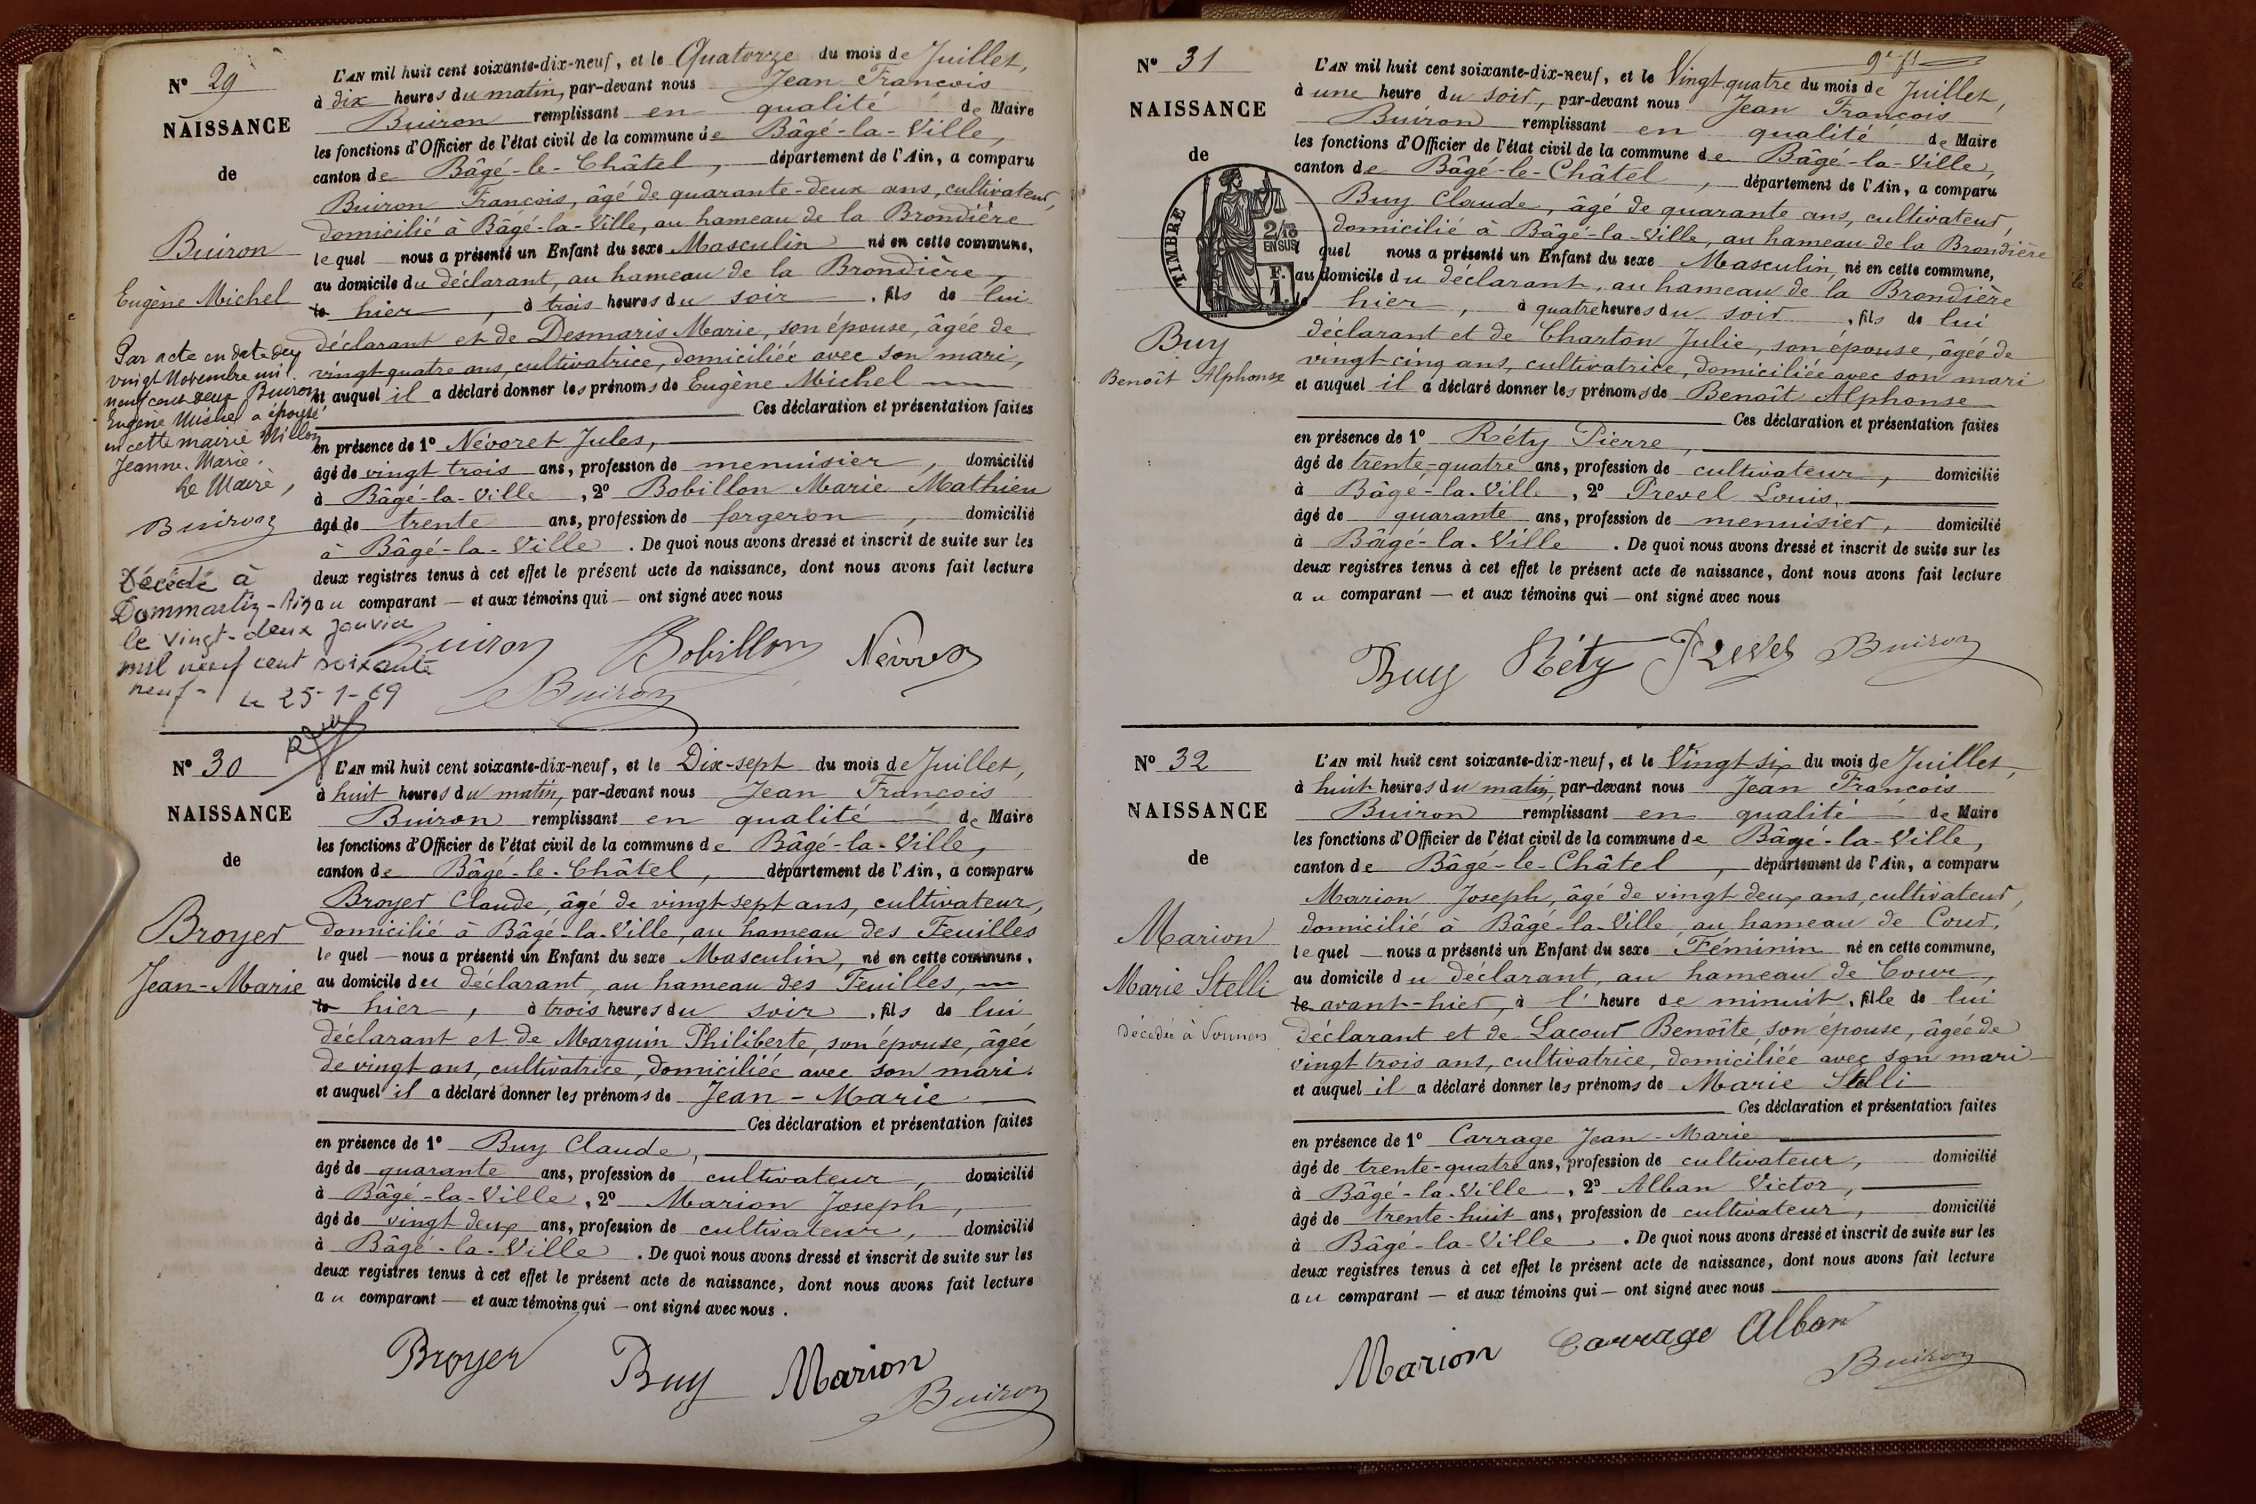 Nº 29
NAISSANCE
de
Buiron
Eugène Michel
Par acte en date du
vingt Novembre mil
neuf cent deux Buiron
Eugène Michel a épousé
en cette mairie Millon
Jeanne Marie.
Le Maire,
Buiron
Décédé à
Dommartin - Ain
le vingt-deux janvier
mil neuf cent soixante
neuf -
Le 25-1-69
L'AN mil huit cent soixante-dix-neuf, et le Quatorze du mois de Juillet,
à dix heures du matin, par-devant nous Jean François
Buiron remplissant en qualité de Maire
les fonctions d'Officier de l'état civil de la commune de Bâgé-la-Ville,
canton de Bâgé-le-Châtel, département de l'Ain, a comparu
Buiron François, âgé de quarante-deux ans, cultivateur,
domicilié à Bâgé-la-Ville, au hameau de la Brondière
lequel nous a présenté un Enfant du sexe Masculin né en cette commune,
au domicile du déclarant, au hameau de la Brondière,
le hier, à trois heures du soir, fils de lui
déclarant et de Desmaris Marie, son épouse, âgée de
vingt-quatre ans, cultivatrice, domiciliée avec son mari,
et auquel il a déclaré donner les prénoms de Eugène Michel
Ces déclaration et présentation faites
en présence de 1º Névoret Jules,
âgé de vingt trois ans, profession de menuisier, domicilié
à Bâgé-la-Ville, 2º Bobillon Marie Mathieu
âgé de trente ans, profession de forgeron, domicilié
à Bâgé-la-Ville. De quoi nous avons dressé et inscrit de suite sur les
deux registres tenus à cet effet le présent acte de naissance, dont nous avons fait lecture
au comparant — et aux témoins qui — ont signé avec nous
Buiron Bobillon
Buiron
Nº 30
NAISSANCE
de
Broyer
Jean-Marie
L'AN mil huit cent soixante-dix-neuf, et le Dix-sept du mois de Juillet,
à huit heures du matin, par-devant nous Jean François
Buiron remplissant en qualité de Maire
les fonctions d'Officier de l'état civil de la commune de Bâgé-la-Ville,
canton de Bâgé-le-Châtel, département de l'Ain, a comparu
Broyer Claude, âgé de vingt sept ans, cultivateur,
domicilié à Bâgé-la-Ville, au hameau des Feuilles
lequel — nous a présenté un Enfant du sexe Masculin, né en cette commune,
au domicile du déclarant, au hameau des Feuilles,
le hier, à trois heures du soir, fils de lui
déclarant et de Marguin Philiberte, son épouse, âgée
de vingt ans, cultivatrice, domiciliée avec son mari.
et auquel il a déclaré donner les prénoms de Jean-Marie
Ces déclaration et présentation faites
en présence de 1º Buy Claude,
âgé de quarante ans, profession de cultivateur, domicilié
à Bâgé-la-Ville, 2º Marion Joseph,
âgé de vingt deux ans, profession de cultivateur, domicilié
à Bâgé-la-Ville. De quoi nous avons dressé et inscrit de suite sur les
deux registres tenus à cet effet le présent acte de naissance, dont nous avons fait lecture
au comparant — et aux témoins qui — ont signé avec nous.
Broyer Buy Marion
Buiron
Nº 31
NAISSANCE
de
TIMBRE
2/10 EN SUS
Buy
Benoît Alphonse
L'AN mil huit cent soixante-dix-neuf, et le Vingt quatre du mois de Juillet,
à une heure du soir, par-devant nous Jean François
Buiron remplissant en qualité de Maire
les fonctions d'Officier de l'état civil de la commune de Bâgé-la-Ville,
canton de Bâgé-le-Châtel, département de l'Ain, a comparu
Buy Claude, âgé de quarante ans, cultivateur,
domicilié à Bâgé-la-Ville, au hameau de la Brondière
quel nous a présenté un Enfant du sexe Masculin, né en cette commune,
au domicile du déclarant, au hameau de la Brondière
hier, à quatre heures du soir, fils de lui
déclarant et de Charton Julie, son épouse, âgée de
vingt-cinq ans, cultivatrice, domiciliée avec son mari
et auquel il a déclaré donner les prénoms de Benoît Alphonse
Ces déclaration et présentation faites
en présence de 1º Réty Pierre,
âgé de trente-quatre ans, profession de cultivateur, domicilié
à Bâgé-la-Ville, 2º Prevel Louis,
âgé de quarante ans, profession de menuisier, domicilié
à Bâgé-la-Ville. De quoi nous avons dressé et inscrit de suite sur les
deux registres tenus à cet effet le présent acte de naissance, dont nous avons fait lecture
au comparant — et aux témoins qui — ont signé avec nous
Buy Réty Prevel Buiron
Nº 32
NAISSANCE
de
Marion
Marie Stelli
décédée à Vonnas
L'AN mil huit cent soixante-dix-neuf, et le Vingt six du mois de Juillet,
à huit heures du matin, par-devant nous Jean François
Buiron remplissant en qualité de Maire
les fonctions d'Officier de l'état civil de la commune de Bâgé-la-Ville,
canton de Bâgé-le-Châtel, département de l'Ain, a comparu
Marion Joseph, âgé de vingt deux ans, cultivateur,
domicilié à Bâgé-la-Ville, au hameau de Cour,
lequel — nous a présenté un Enfant du sexe Féminin né en cette commune,
au domicile du déclarant, au hameau de Cour,
le avant-hier, à l'heure de minuit, fille de lui
déclarant et de Lacour Benoîte, son épouse, âgée de
vingt trois ans, cultivatrice, domiciliée avec son mari
et auquel il a déclaré donner les prénoms de Marie Stelli
Ces déclaration et présentation faites
en présence de 1º Carrage Jean-Marie
âgé de trente-quatre ans, profession de cultivateur, domicilié
à Bâgé-la-Ville, 2º Alban Victor,
âgé de trente-huit ans, profession de cultivateur, domicilié
à Bâgé-la-Ville. De quoi nous avons dressé et inscrit de suite sur les
deux registres tenus à cet effet le présent acte de naissance, dont nous avons fait lecture
au comparant — et aux témoins qui — ont signé avec nous
Marion Carrage Alban
Buiron